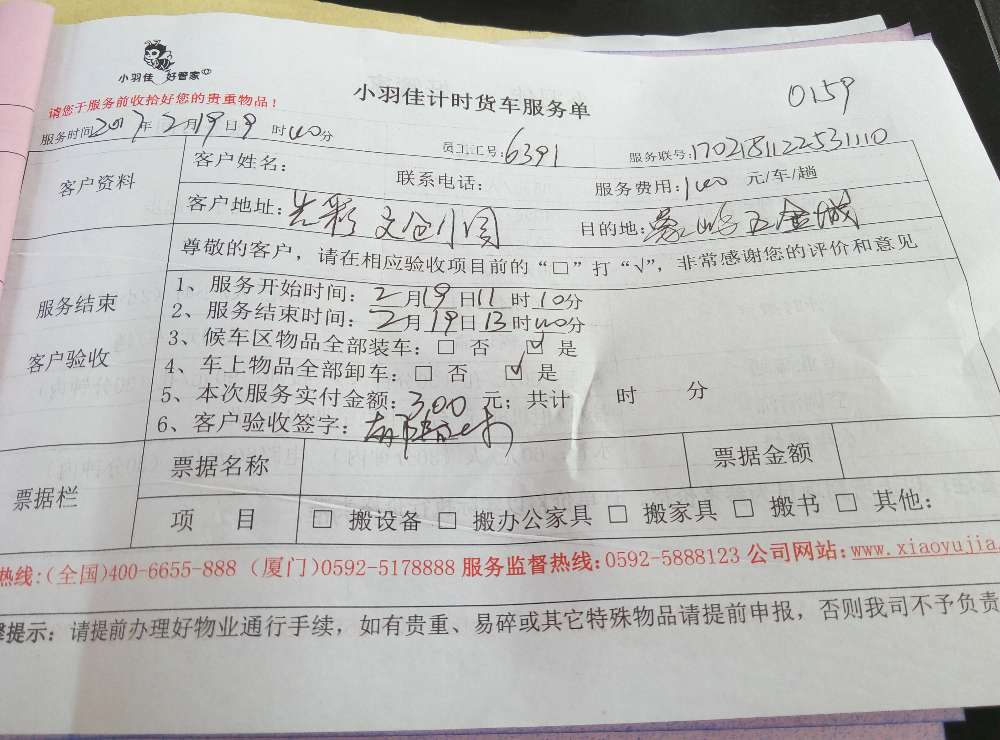 小羽佳 好管家
小羽佳计时货车服务单
0159
请您于服务前收拾好您的贵重物品！
服务时间2017年2月19日9时40分
员工工号：6391
服务联号：1702181122531110
客户资料
客户姓名：
联系电话：
服务费用：100 元/车/趟
客户地址：
目的地： 五金城
尊敬的客户，请在相应验收项目前的“□”打“√”，非常感谢您的评价和意见
服务结束
客户验收
1、服务开始时间：2月19日11时10分
2、服务结束时间：2月19日13时40分
3、候车区物品全部装车：□ 否 ☑ 是
4、车上物品全部卸车：□ 否 ☑ 是
5、本次服务实付金额：300 元；共计 时 分
6、客户验收签字：
票据栏
票据名称
票据金额
项 目
□ 搬设备 □ 搬办公家具 □ 搬家具 □ 搬书 □ 其他：
热线：(全国)400-6655-888 (厦门)0592-5178888 服务监督热线：0592-5888123 公司网站：www.xiaoyujia.
提示：请提前办理好物业通行手续，如有贵重、易碎或其它特殊物品请提前申报，否则我司不予负责